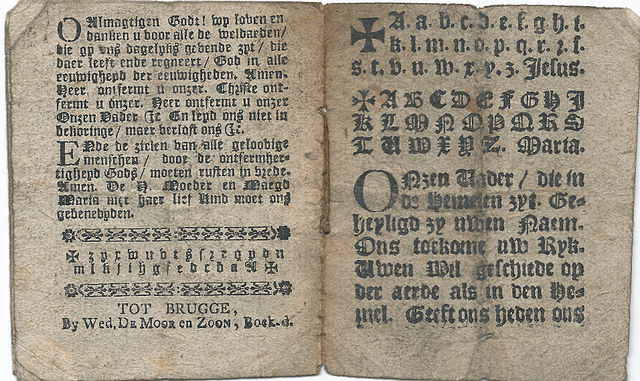 O Almagtigen Godt! wy loven en
danken u voor alle de weldaeden/
die gy ons dagelyks gevende zyt/ die
daer leeft ende regneert/ God in alle
eeuwigheyd der eeuwigheden. Amen.
Heer ontfermt u onzer. Christe ont-
fermt u onzer. Heer ontfermt u onzer
Onzen Vader ꝛc. En leyd ons niet in
bekoringe/ maer verlost ons ꝛc.
Ende de zielen van alle geloovige
menschen/ door de ontfermher-
tigheyd Gods/ moeten rusten in vrede.
Amen. De H. Moeder en Maegd
Maria met haer lief Kind moet ons
gebenedyden.
✠ z y x w u v t s ſ r ꝛ q p o n
m l k j i h g f e d c b a A ✠
TOT BRUGGE,
By Wed. DE MOOR en ZOON, Boek-d.
✠ A. a. b. c. d. e. f. g. h. i.
k. l. m. n. o. p. q. r. ꝛ. ſ.
s. t. v. u. w. x. y. z. Jesus.
✠ A B C D E F G H J
K L M N O P Q R S
T U W X Y Z. Maria.
ONzen Vader/ die in
de Hemelen zyt. Ge-
heyligd zy uwen Naem.
Ons toekome uw Ryk.
Uwen Wil geschiede op
der aerde als in den He-
mel. Geeft ons heden ons